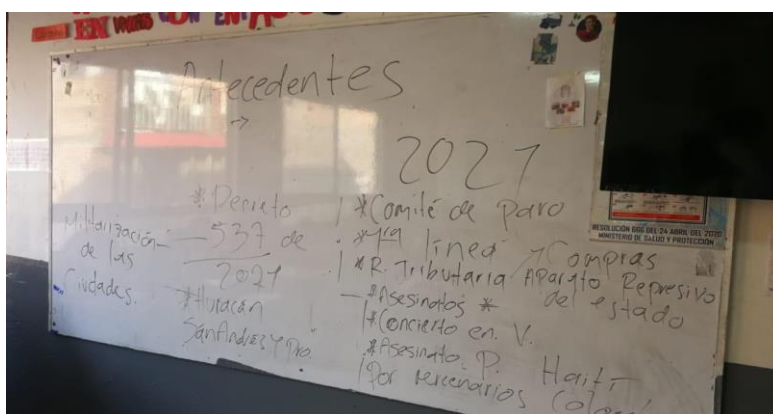 EN
Antecedentes
→
2021
Militarización
de las
Ciudades.
* Decreto
537 de
2021
* Huracán
San Andrés y Pro.
* Comité de Paro
* 1ra línea → Compras
* R. Tributaria Aparato Represivo
del estado
* Asesinatos *
* Concierto en. V.
* Asesinato. P. Haití
Por mercenarios
RESOLUCIÓN 666 DEL 24 ABRIL DEL 2020
MINISTERIO DE SALUD Y PROTECCIÓN